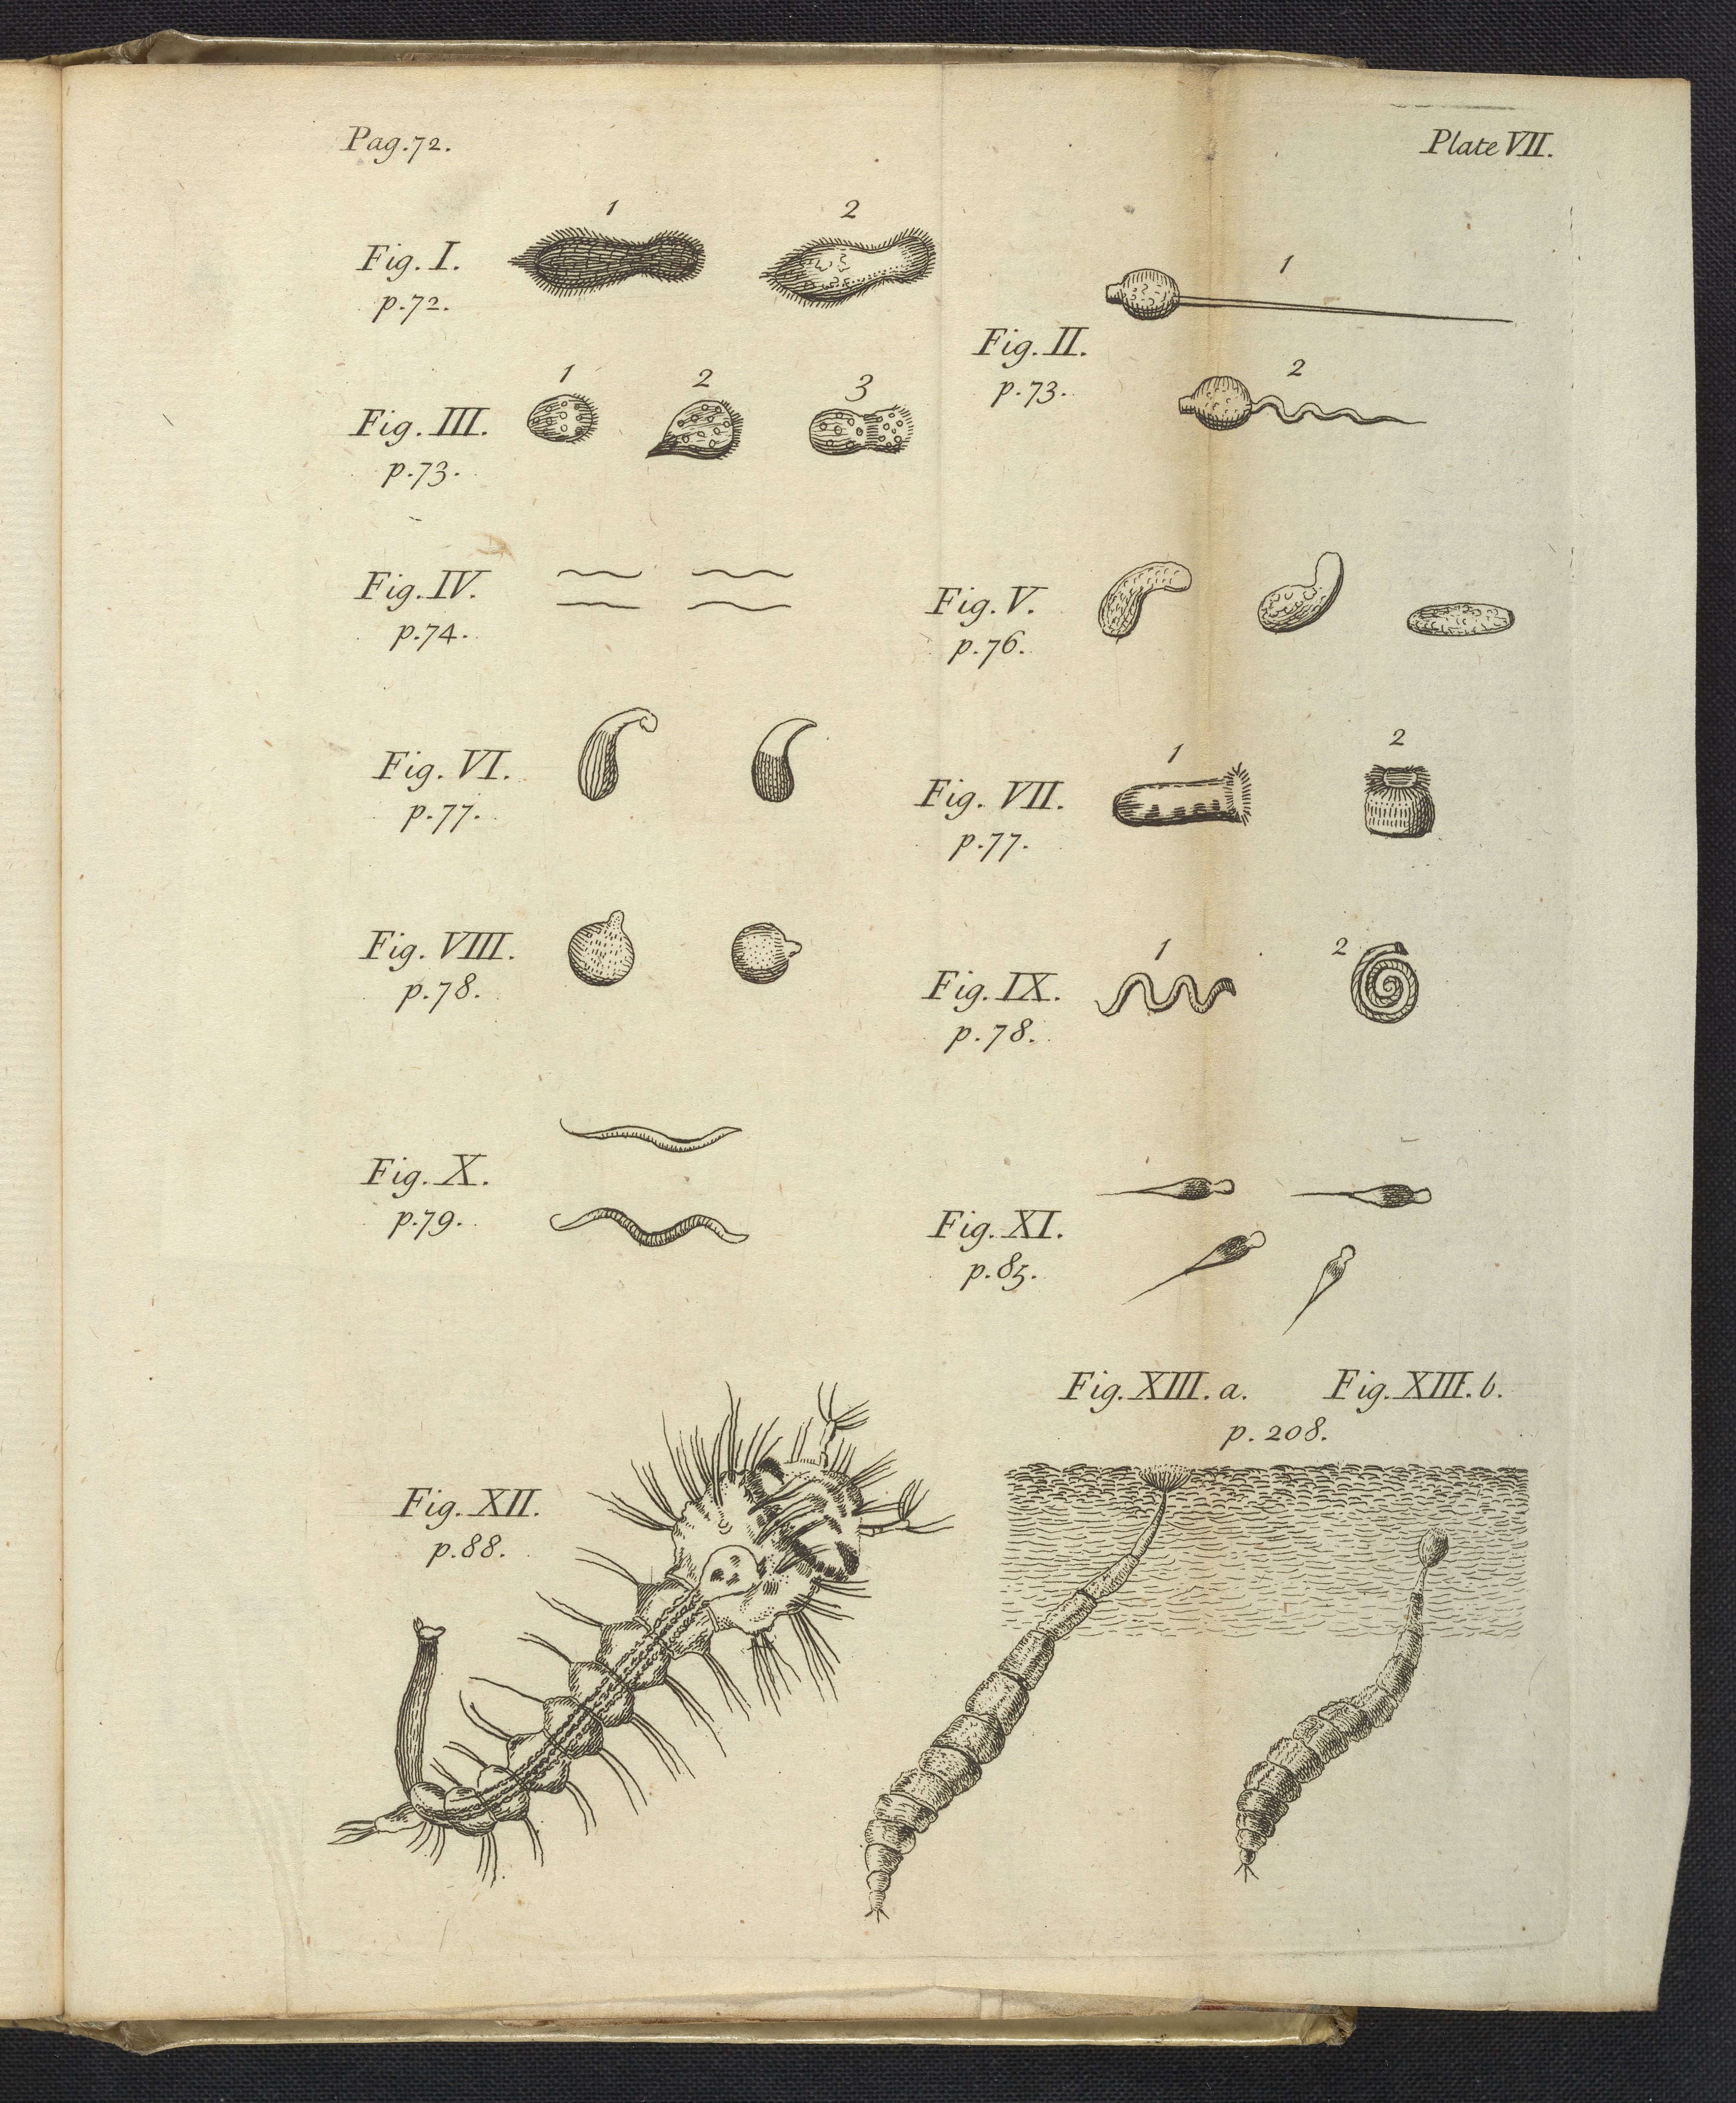 Pag.72.
Plate VII.
1
2
Fig. I.
p.72.
1
Fig. II.
p.73.
2
1
2
3
Fig. III.
p.73.
Fig. IV.
p.74.
Fig. V.
p.76.
Fig. VI.
p.77.
1
2
Fig. VII.
p.77.
Fig. VIII.
p.78.
1
2
Fig. IX.
p.78.
Fig. X.
p.79.
Fig. XI.
p.85.
Fig. XII.
p.88.
Fig. XIII. a.
Fig. XIII. b.
p. 208.